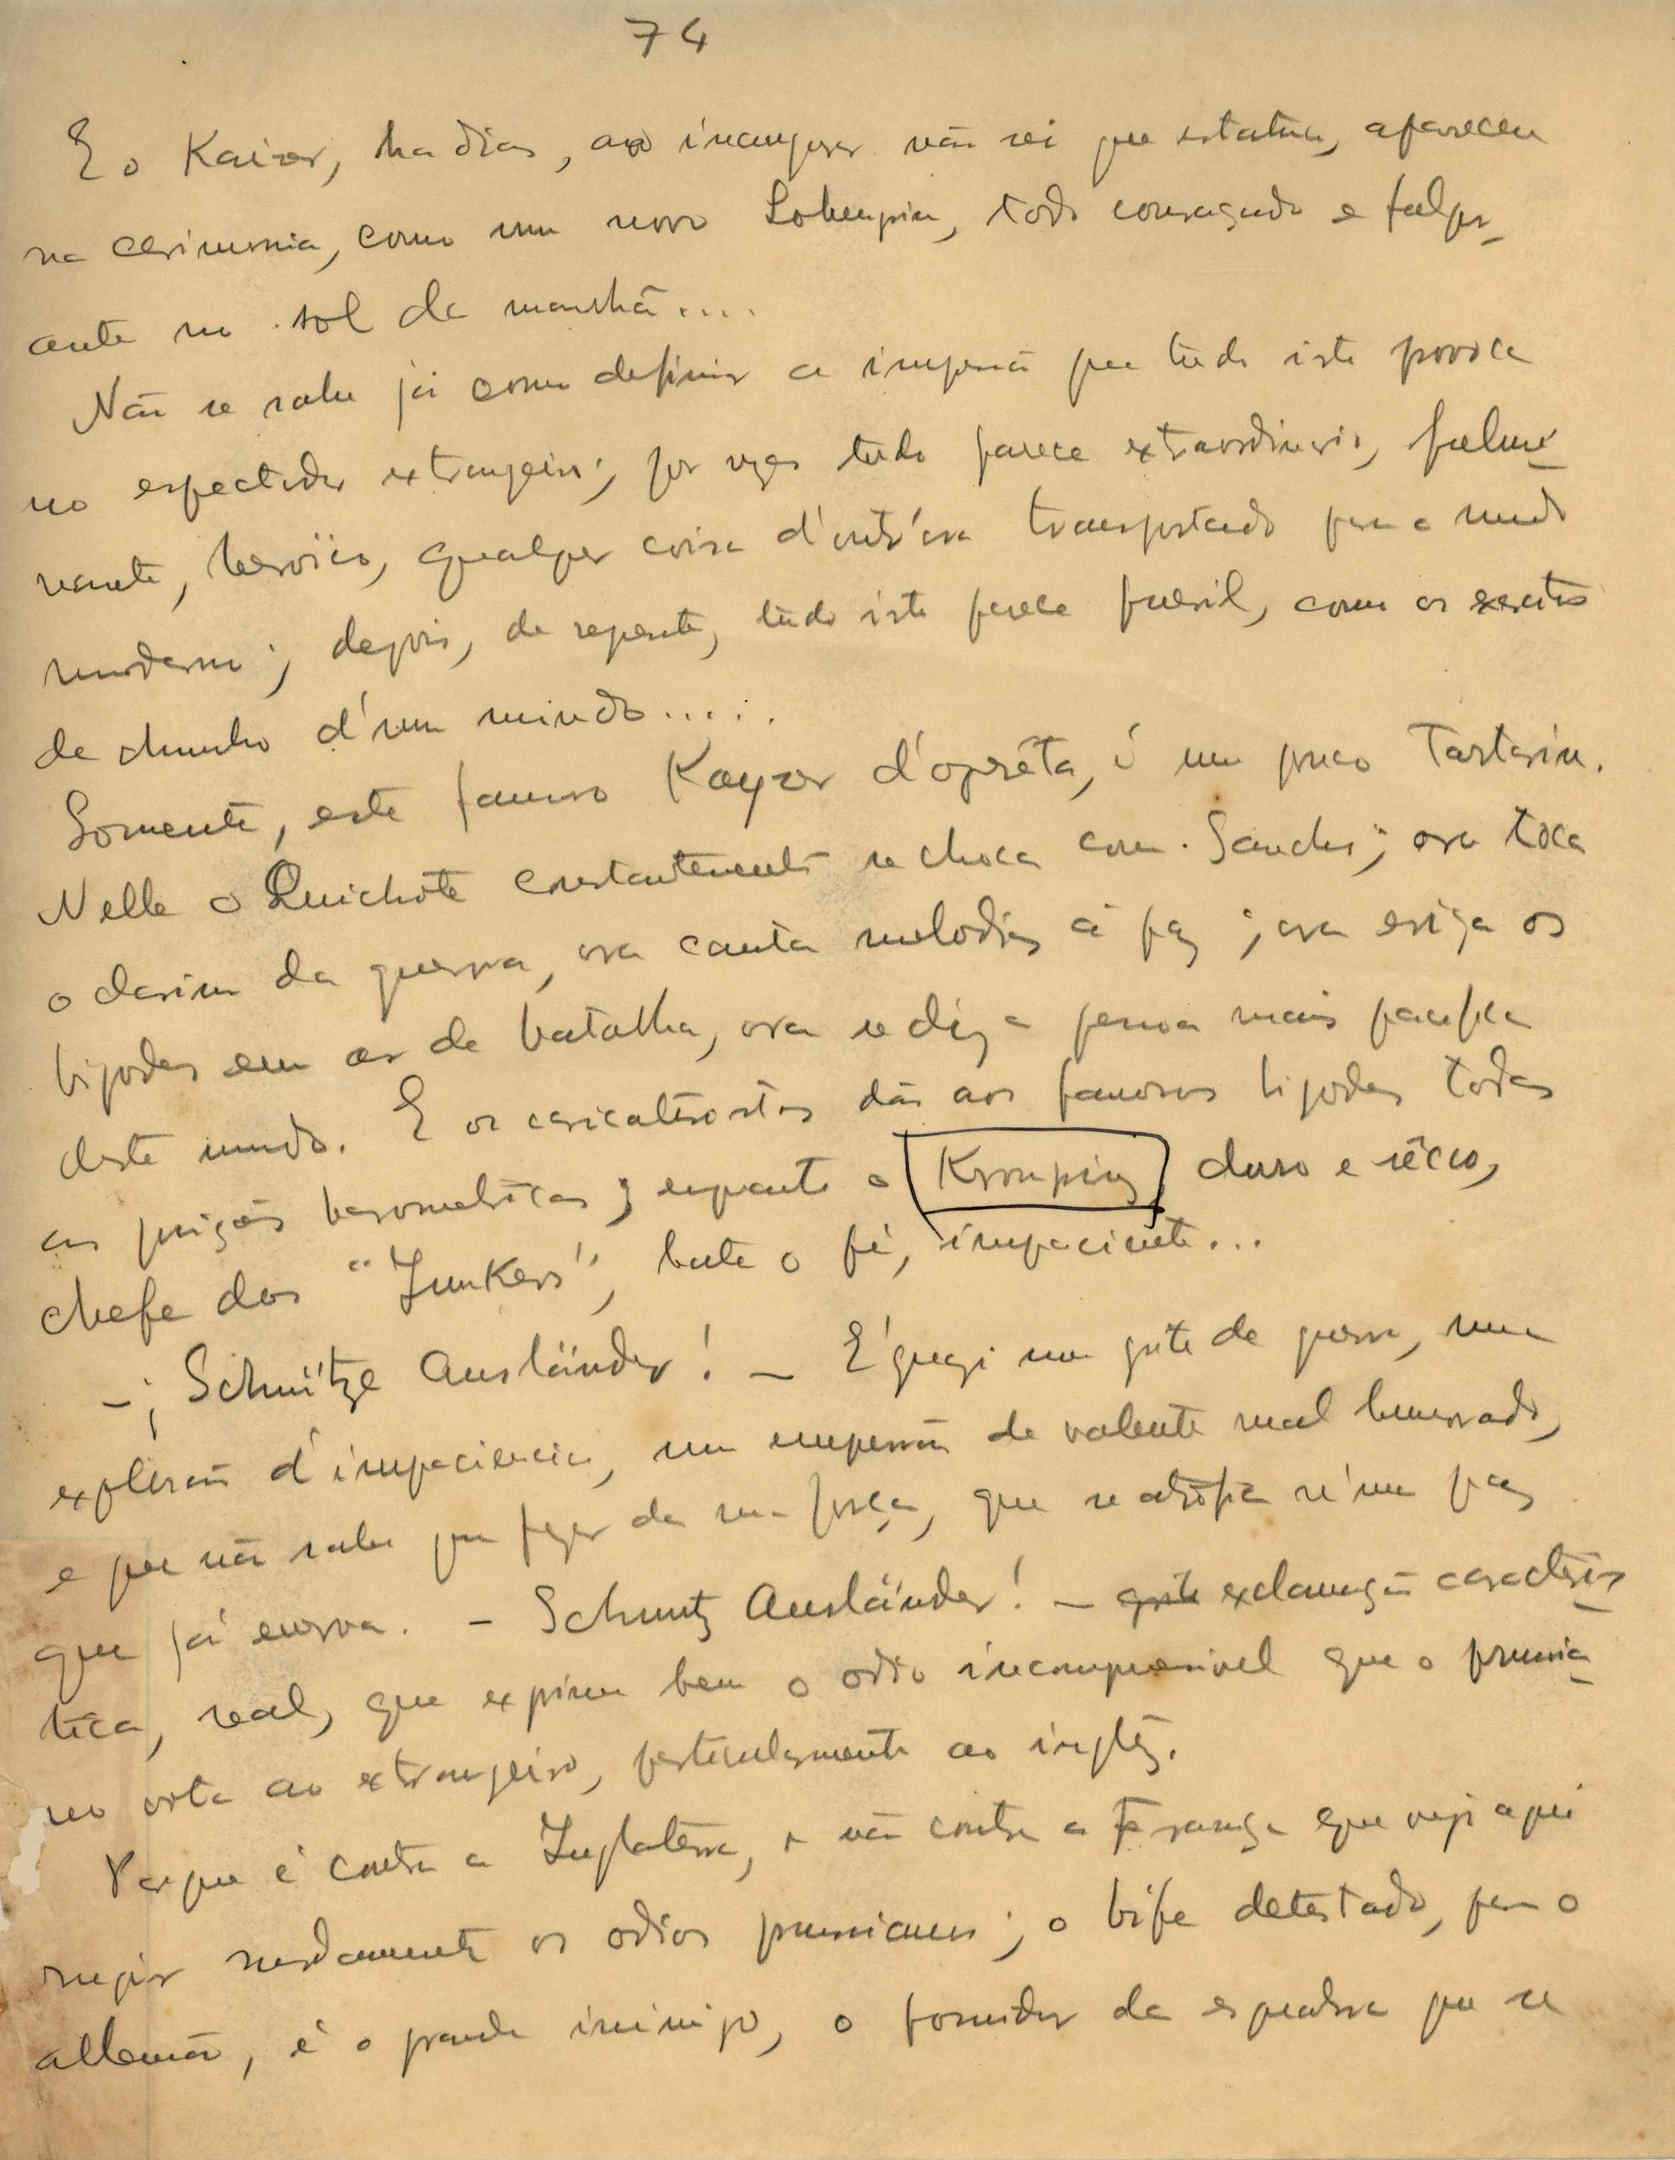 74
E o Kaiser, ha dias, ao inaugurar não sei que estatua, apareceu
na cerimonia, como um novo Lohengrin, todo couraçado e fulgur-
ante no sol da manhã....
Não se sabe já como definir a impressão que tudo isto provoca
no espectador extrangeiro; por vezes tudo parece extraordinario,
heroico, qualquer coisa d'outr'ora transportado para o mundo
moderno; depois, de repente, tudo isto parece pueril, como os exercitos
de chumbo d'um miudo.....
Somente, este famoso Kayser d'operêta, é um pouco Tartarin.
Nelle o Quichote constantemente se choca com Sancho; ora toca
o clarim da guerra, ora canta melodias á paz; ora eriça os
bigodes em ar de batalha, ora se diz a pessoa mais pacifica
deste mundo. E os caricaturistas dão aos famosos bigodes todas
as posições barometricas; emquanto o Kronprinz, duro e sêcco,
chefe dos "Junkers", bate o pé, impaciente...
-; Schmütze Ausländer! - E' quazi um grito de guerra, uma
explosão d'impaciencia, um de valente mal humorado,
e que não sabe que fazer da sua força, que se atrofia n'uma paz
que já enerva. - Schmutz Ausländer! - grito exclamação caracteris-
tica, real, que exprime bem o odio incompressivel que o prussia-
no vota ao extrangeiro, particularmente ao inglêz.
Porque é contra a Inglaterra, e não contra a França que vejo aqui
rugir surdamente os odios prussianos; o bife detestado, para o
allemão, é o grande inimigo, o fornidor da esquadra que se